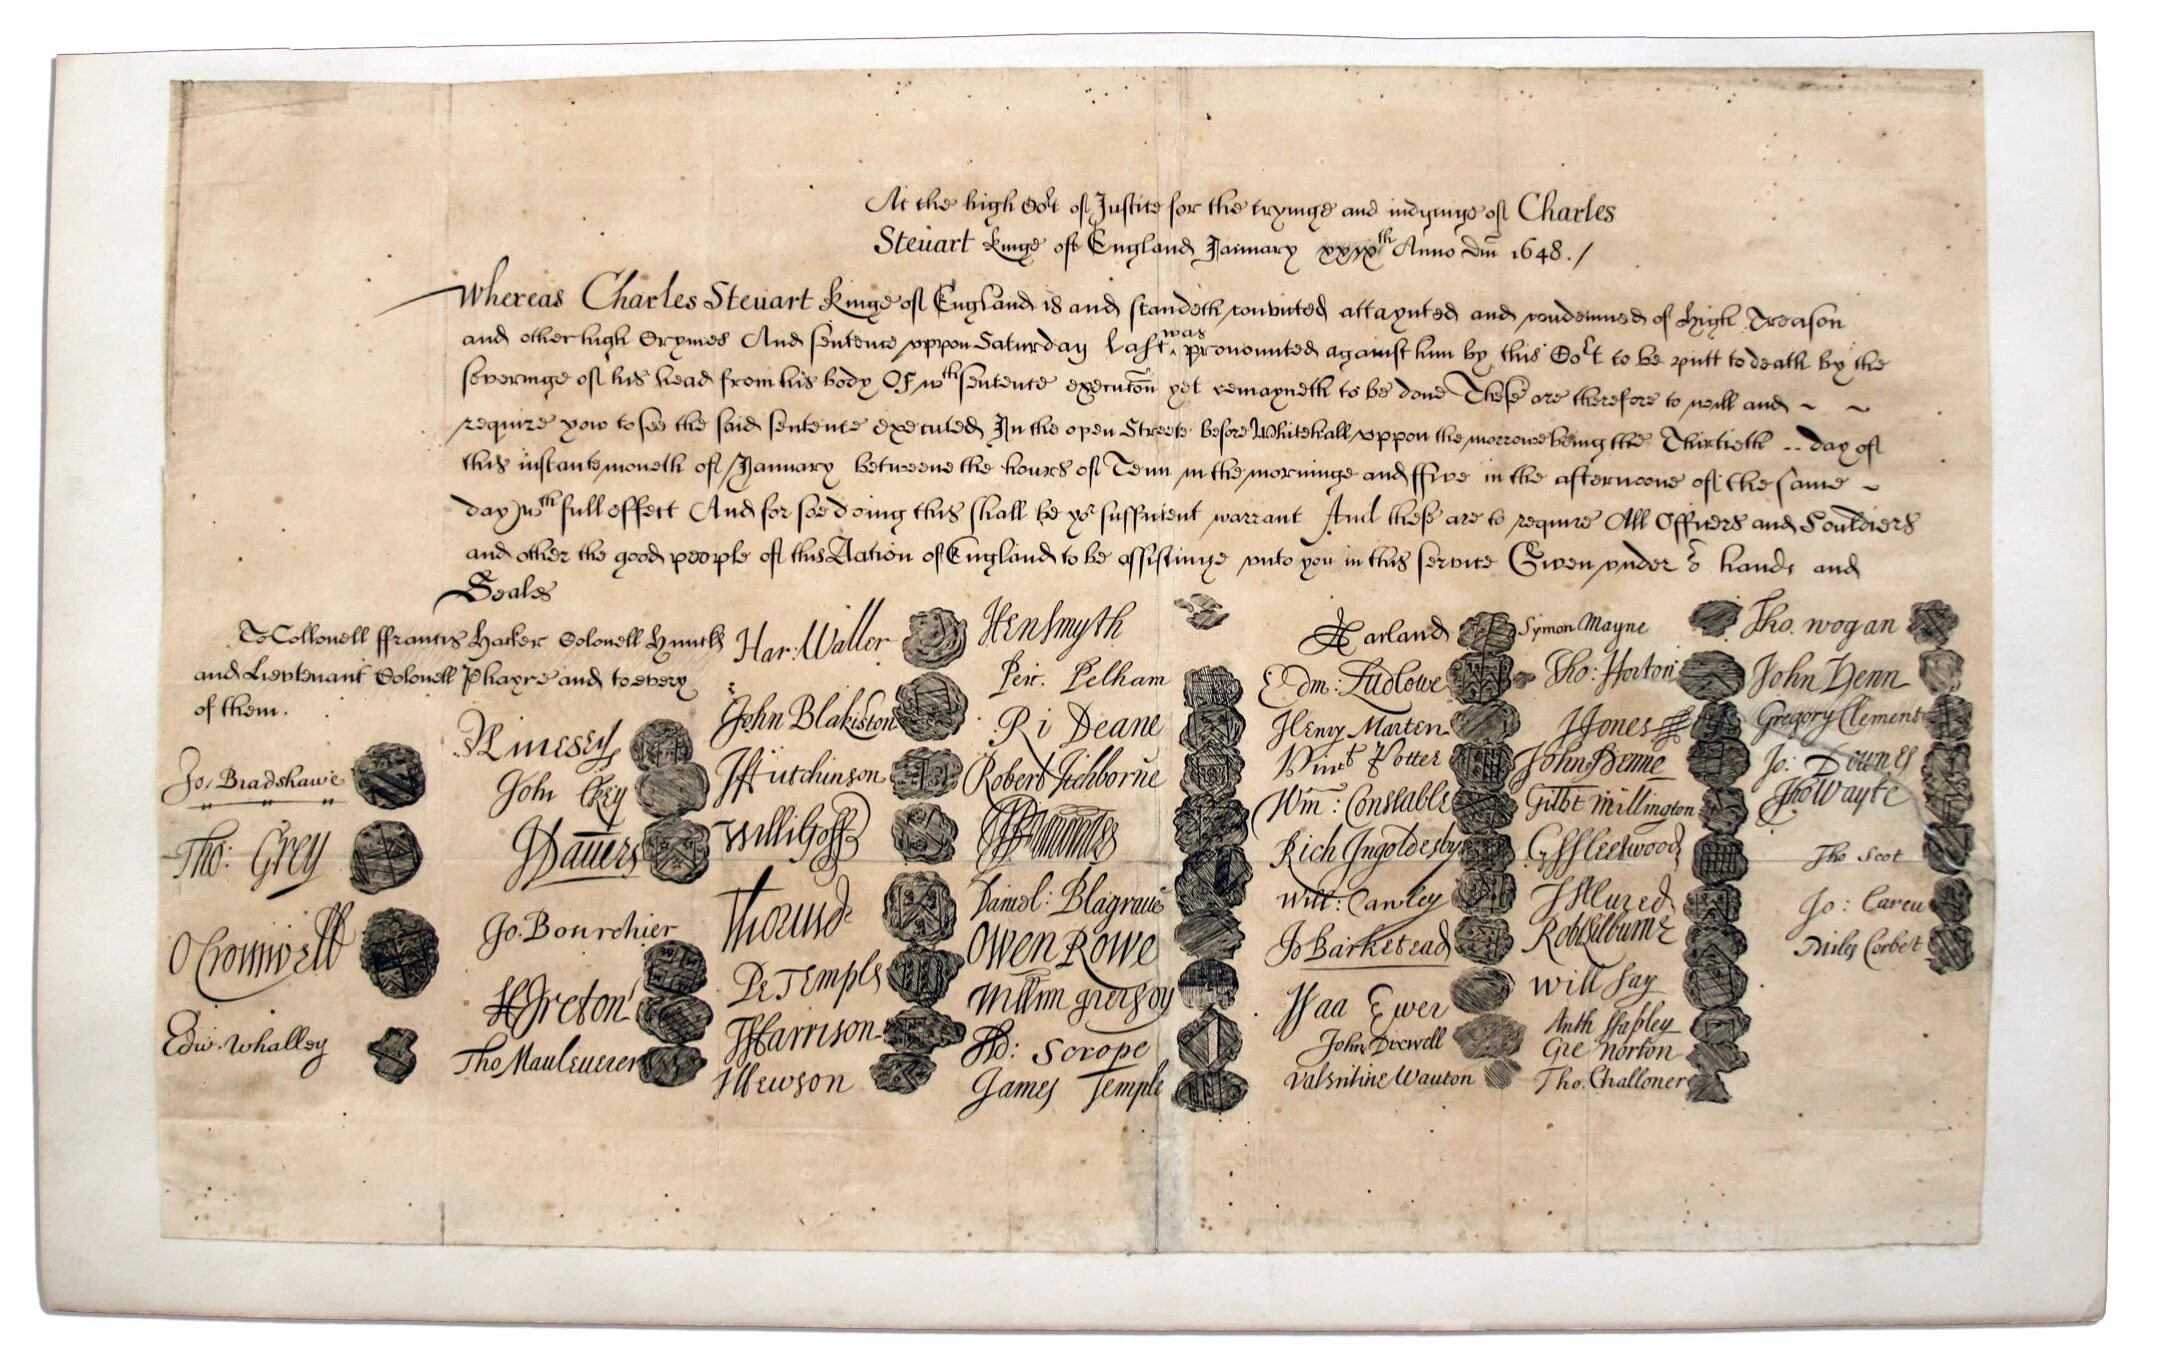 At the high Cort of Justice for the tryinge and iudginge of Charles
Steuart Kinge of England January xxixth Anno Dm 1648./
Whereas Charles Steuart Kinge of England is and standeth convicted attaynted and condemned of High Treason
and other high Crymes And sentence uppon Saturday last was pronounced against him by this Cort to be putt to death by the
severinge of his head from his body Of wch sentence execucon yet remayneth to be done These are therefore to will and
require you to see the said sentence executed In the open Streete before Whitehall uppon the morrowe being the Thirtieth day of
this instante moneth of January betweene the houres of Tenn in the morninge and ffive in the afternoone of the same
day wth full effect And for soe doing this shall be yor sufficient warrant And these are to require All Officers and Souldiers
and other the good people of this Nation of England to be assistinge unto you in this service Given under or hands and
Seales
To Collonell ffrancis Hacker Colonell Huncks
and Lieutenant Colonell Phayre and to every
of them.
Jo. Bradshawe
Tho: Grey
O Cromwell
Edw. Whalley
M Livesey
John Okey
J Dauers
Jo. Bourchier
H Ireton
Tho Mauleuerer
Har: Waller
John Blakiston
J Hutchinson
Willi Goff
Tho Pride
Pe Temple
T Harrison
J Hewson
Hen Smyth
Per. Pelham
Ri Deane
Robert Tichborne
H Edwardes
Daniel: Blagraue
Owen Rowe
Willm Purefoy
Ad: Scrope
James Temple
A Garland
Edm: Ludlowe
Henry Marten
Vinct Potter
Wm: Constable
Rich Ingoldesby
Will: Cawley
Jo Barkstead
Isaa Ewer
John Dixwell
Valentine Wauton
Symon Mayne
Tho: Horton
J Jones
John Penne
Gilbt Millington
G ffleetwood
J Alured
Robt Lilburne
Will Say
Anth Stapley
Gre Norton
Tho. Challoner
Tho. Wogan
John Venn
Gregory Clement
Jo: Downes
Tho Wayte
Tho Scot
Jo: Carew
Miles Corbet